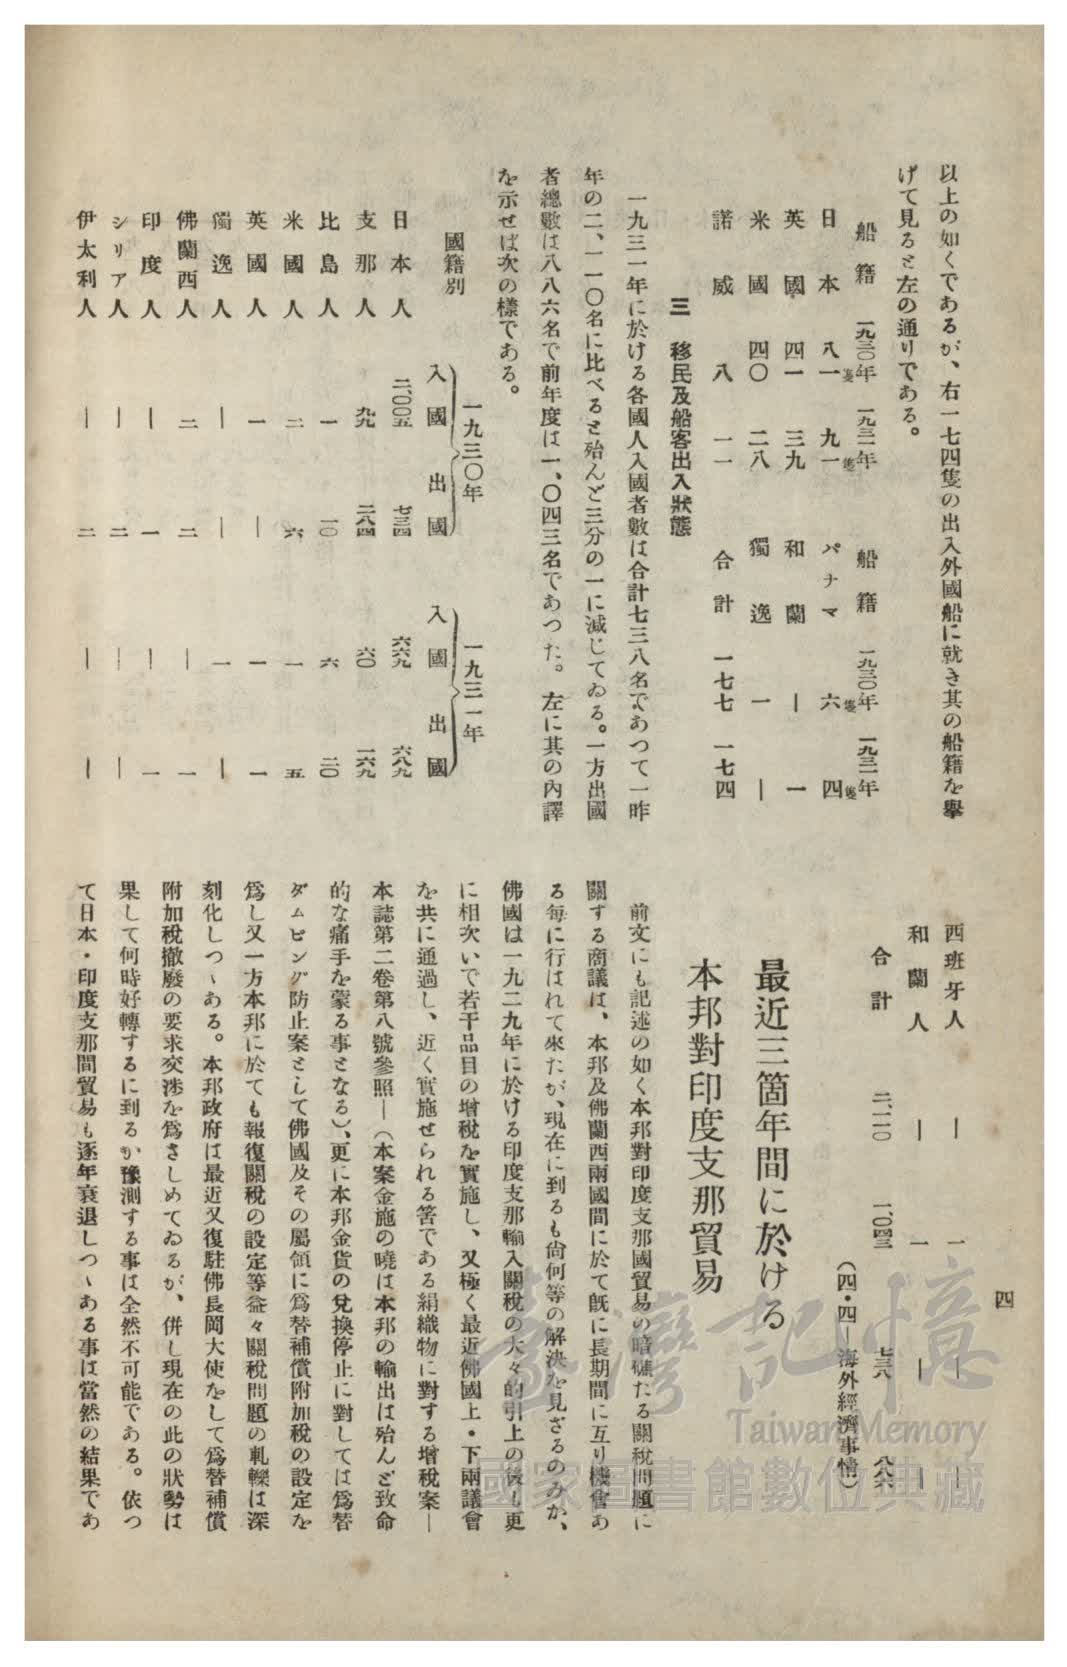 四
以上の如くであるが、右一七四隻の出入外國船に就き其の船籍を擧
げて見ると左の通りである。
船籍 一九三〇年 一九三一年 船籍 一九三〇年 一九三一年
日本 八一隻 九一隻 パナマ 六隻 四隻
英國 四一 三九 和蘭 ― 一
米國 四〇 二八 獨逸 一 ―
諾威 八 一一 合計 一七七 一七四
三 移民及船客出入狀態
一九三一年に於ける各國人入國者數は合計七三八名であつて一昨
年の二、一一〇名に比べると殆んど三分の一に減じてゐる。一方出國
者總數は八八六名で前年度は一、〇四三名であつた。左に其の內譯
を示せば次の樣である。
一九三〇年 一九三一年
國籍別 入國 出國 入國 出國
日本人 二、〇〇五 七三四 六六九 六八九
支那人 九九 二八四 六〇 一六九
比島人 一 一〇 六 二〇
米國人 二 六 一 五
英國人 一 ― 一 一
獨逸人 ― ― 一 ―
佛蘭西人 二 二 ― 一
印度人 ― 一 ― 一
シリア人 ― 二 ― ―
伊太利人 ― 二 ― ―
西班牙人 ― 一 ― ―
和蘭人 ― 一 ― ―
合計 二、一一〇 一、〇四三 七三八 八八六
(四・四―海外經濟事情)
最近三箇年間に於ける
本邦對印度支那貿易
前文にも記述の如く本邦對印度支那國貿易の暗礁たる關稅問題に
關する商議は、本邦及佛蘭西兩國間に於て旣に長期間に亙り機會あ
る每に行はれて來たが、現在に到るも尙何等の解決を見ざるのみか、
佛國は一九二九年に於ける印度支那輸入關稅の大々的引上の後も更
に相次いで若干品目の增稅を實施し、又極く最近佛國上・下兩議會
を共に通過し、近く實施せられる筈である絹織物に對する增稅案―
本誌第二卷第八號參照―(本案金施の曉は本邦の輸出は殆んど致命
的な痛手を蒙る事となる)、更に本邦金貨の兌換停止に對しては爲替
ダムピング防止案として佛國及その屬領に爲替補償附加稅の設定を
爲し又一方本邦に於ても報復關稅の設定等益々關稅問題の軋轢は深
刻化しつゝある。本邦政府は最近又復駐佛長岡大使をして爲替補償
附加稅撤廢の要求交涉を爲さしめてゐるが、併し現在の此の狀勢は
果して何時好轉するに到るか豫測する事は全然不可能である。依つ
て日本・印度支那間貿易も逐年衰退しつゝある事は當然の結果であ
臺灣記憶
Taiwan Memory
國家圖書館數位典藏